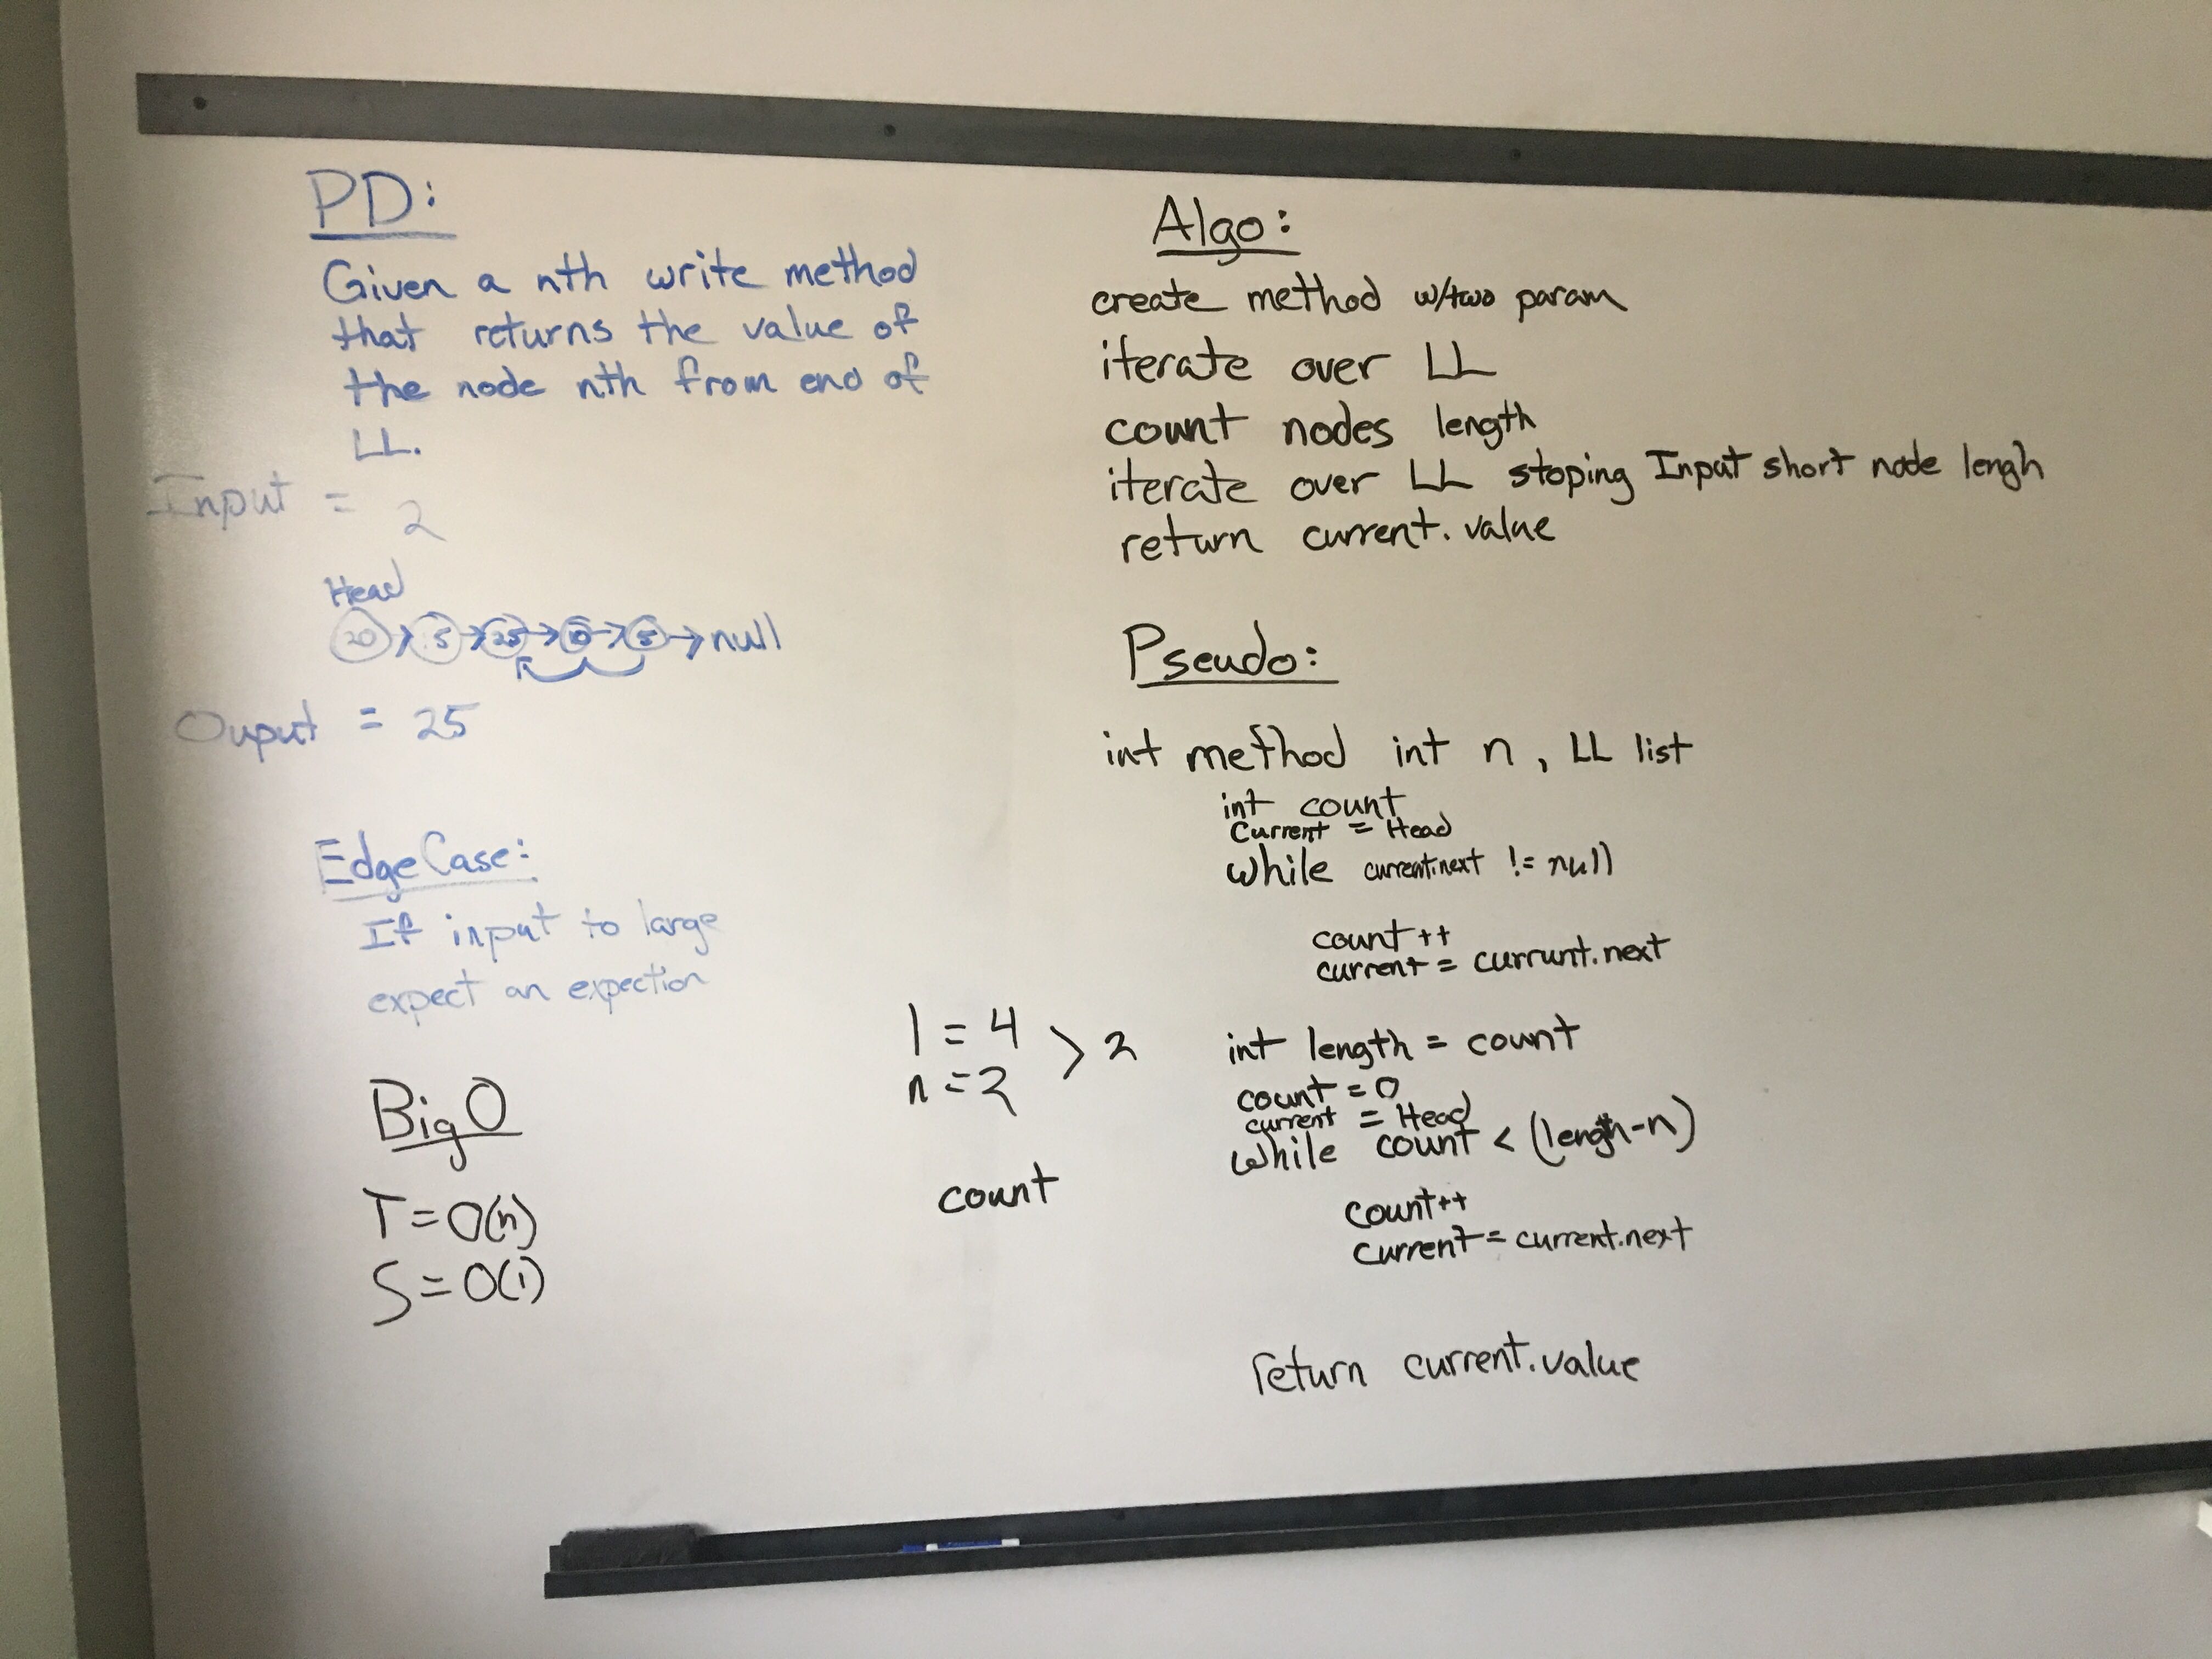 PD:
Given a nth write method
that returns the value of
the node nth from end of
LL.
Input = 2
Head
20 → 5 → 25 → 10 → 5 → null
Ouput = 25
Edge Case:
If input to large
expect an expection
Big O
T = O(n)
S = O(1)
Algo:
create method w/two param
iterate over LL
count nodes length
iterate over LL stoping Input short node lengh
return current.value
Pseudo:
int method int n, LL list
int count
Current = Head
while current.next != null
count++
current = currunt.next
l = 4 > 2
n = 2
int length = count
count = 0
current = Head
while count < (length-n)
count
count++
current = current.next
return current.value